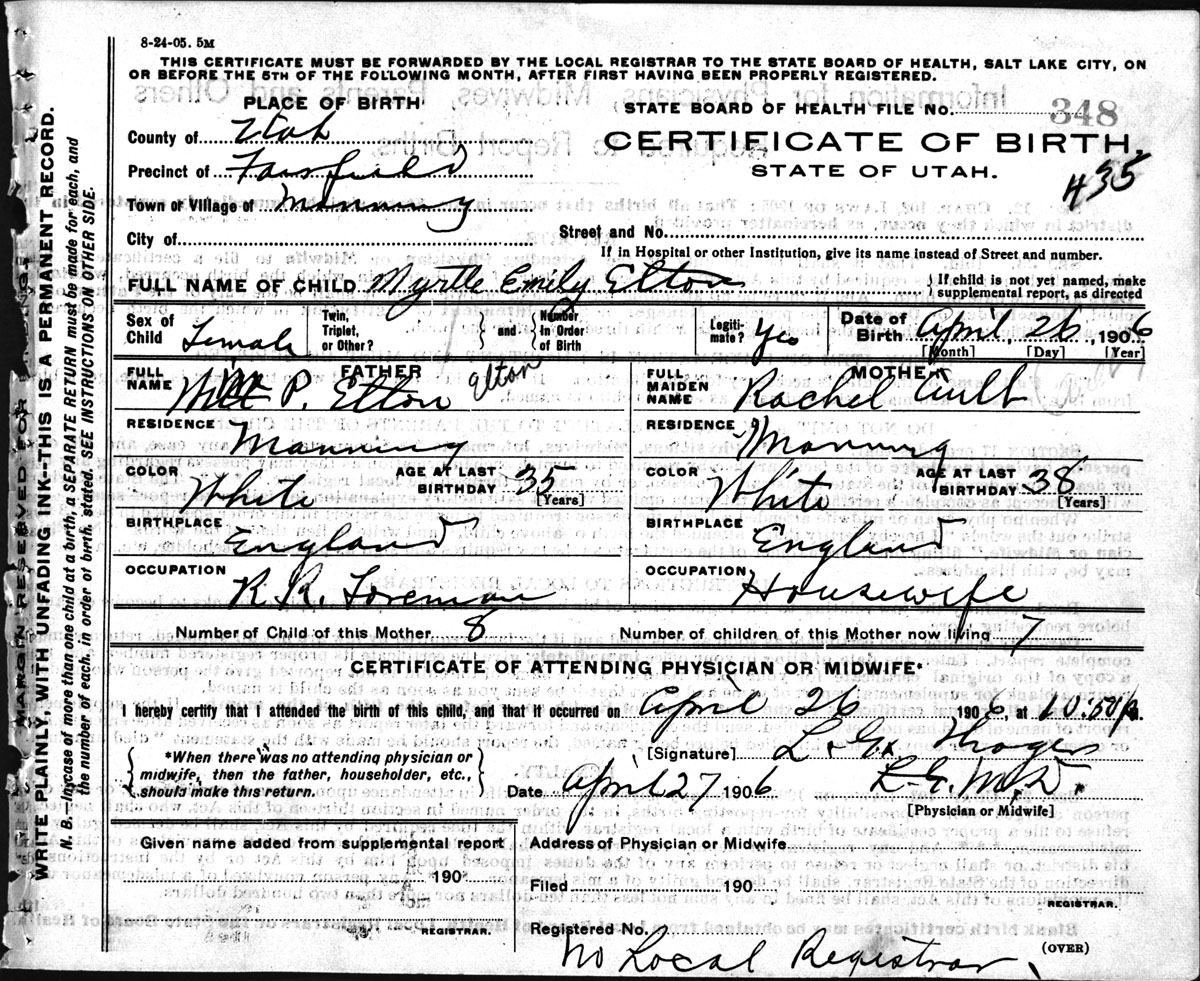 8-24-05. 5M
THIS CERTIFICATE MUST BE FORWARDED BY THE LOCAL REGISTRAR TO THE STATE BOARD OF HEALTH, SALT LAKE CITY, ON
OR BEFORE THE 5TH OF THE FOLLOWING MONTH, AFTER FIRST HAVING BEEN PROPERLY REGISTERED.
PLACE OF BIRTH
STATE BOARD OF HEALTH FILE NO. 348
County of Utah
CERTIFICATE OF BIRTH.
Precinct of Fairfield
STATE OF UTAH.
435
Town or Village of Manning
City of
Street and No.
If in Hospital or other Institution, give its name instead of Street and number.
FULL NAME OF CHILD Myrtle Emily Elton
If child is not yet named, make
supplemental report, as directed
Sex of Child Female
Twin, Triplet, or Other?
and
Number in Order of Birth
Legitimate? Yes
Date of Birth April, 26, 1906
[Month] [Day] [Year]
FATHER
FULL NAME P. Elton
Elton
RESIDENCE Manning
COLOR White
AGE AT LAST BIRTHDAY 35
[Years]
BIRTHPLACE England
OCCUPATION R.R. Foreman
MOTHER
FULL MAIDEN NAME Rachel
RESIDENCE Manning
COLOR White
AGE AT LAST BIRTHDAY 38
[Years]
BIRTHPLACE England
OCCUPATION Housewife
Number of Child of this Mother 8
Number of children of this Mother now living 7
CERTIFICATE OF ATTENDING PHYSICIAN OR MIDWIFE*
I hereby certify that I attended the birth of this child, and that it occurred on April 26 1906, at 10:50
*When there was no attending physician or
midwife, then the father, householder, etc.,
should make this return.
[Signature] L. G.
Date April 27 1906
L G. M.D.
[Physician or Midwife]
Given name added from supplemental report
190
REGISTRAR.
Address of Physician or Midwife
Filed 190
REGISTRAR.
Registered No.
No Local Registrar
(OVER)
MARGIN RESERVED FOR BINDING
WRITE PLAINLY, WITH UNFADING INK--THIS IS A PERMANENT RECORD.
N. B.—In case of more than one child at a birth, a SEPARATE RETURN must be made for each, and
the number of each, in order of birth, stated. SEE INSTRUCTIONS ON OTHER SIDE.